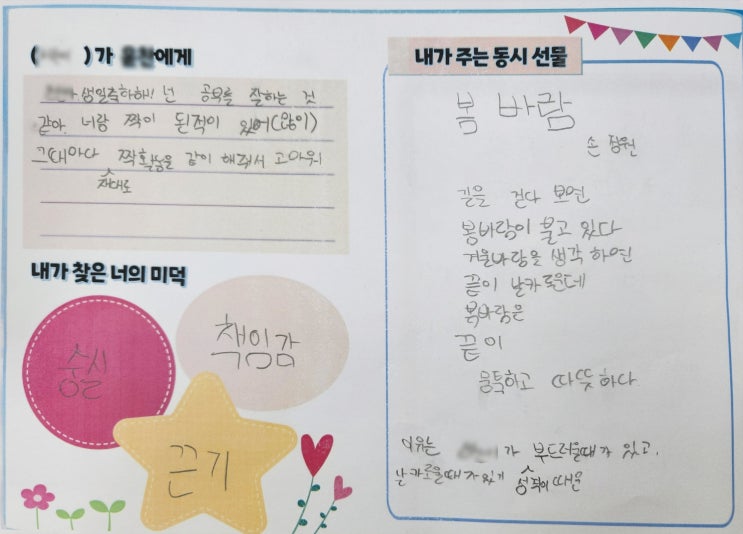 ( )가 에게
생일축하해! 넌 공부를 잘하는 것
같아. 너랑 짝이 된적이 있어(많이)
그때마다 짝활동을 같이 해줘서 고마워
제대로
내가 찾은 너의 미덕
충실
책임감
끈기
내가 주는 동시 선물
봄 바람
손 정원
길을 걷다 보면
봄바람이 불고 있다
겨울바람을 생각 하면
끝이 날카로운데
봄바람은
끝이
뭉툭하고 따뜻하다
이유는 가 부드러울때가 있고.
날카로울때가 있기 때문